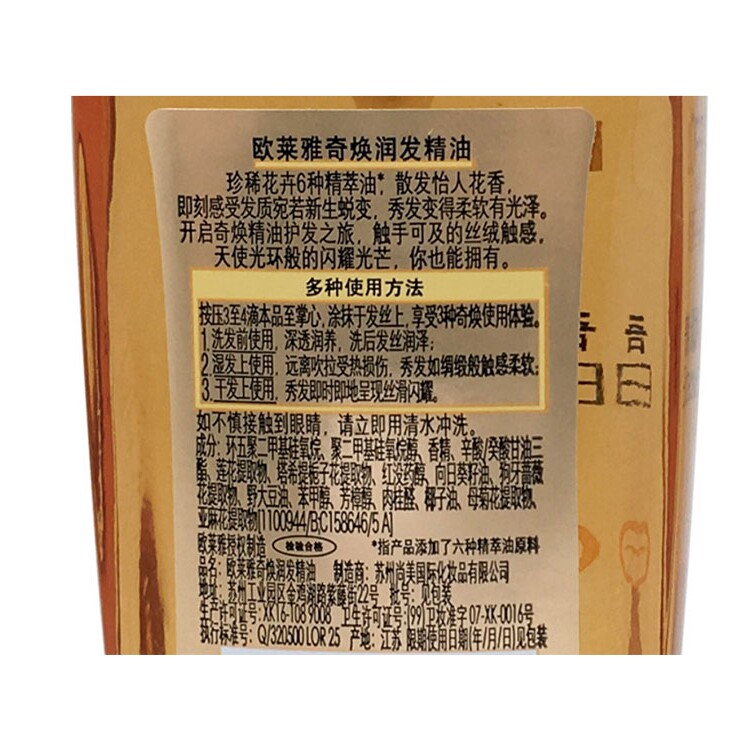 欧莱雅奇焕润发精油
珍稀花卉6种精萃油*,散发怡人花香,
即刻感受发质宛若新生蜕变,秀发变得柔软有光泽。
开启奇焕精油护发之旅,触手可及的丝绒触感,
天使光环般的闪耀光芒,你也能拥有。
多种使用方法
按压3至4滴本品至掌心,涂抹于发丝上,享受3种奇焕使用体验。
1.洗发前使用,深透润养,洗后发丝润泽;
2.湿发上使用,远离吹拉受热损伤,秀发如绸缎般触感柔软;
3.干发上使用,秀发即时即地呈现丝滑闪耀。
如不慎接触到眼睛,请立即用清水冲洗。
成分:环五聚二甲基硅氧烷、聚二甲基硅氧烷醇、香精、辛酸/癸酸甘油三
酯、莲花提取物、塔希提栀子花提取物、红没药醇、向日葵籽油、狗牙蔷薇
花提取物、野大豆油、苯甲醇、芳樟醇、肉桂醛、椰子油、母菊花提取物、
亚麻花提取物[1100944/B;C158646/5 A]
欧莱雅授权制造 检验合格 *指产品添加了六种精萃油原料
品名:欧莱雅奇焕润发精油 制造商:苏州尚美国际化妆品有限公司
地址:苏州工业园区金鸡湖路紫藤街22号 批号:见包装
生产许可证号:XK16-T08 9008 卫生许可证号:(99)卫妆准字07-XK-0016号
执行标准号:Q/320500 LOR 25 产地:江苏 限期使用日期(年/月/日)见包装